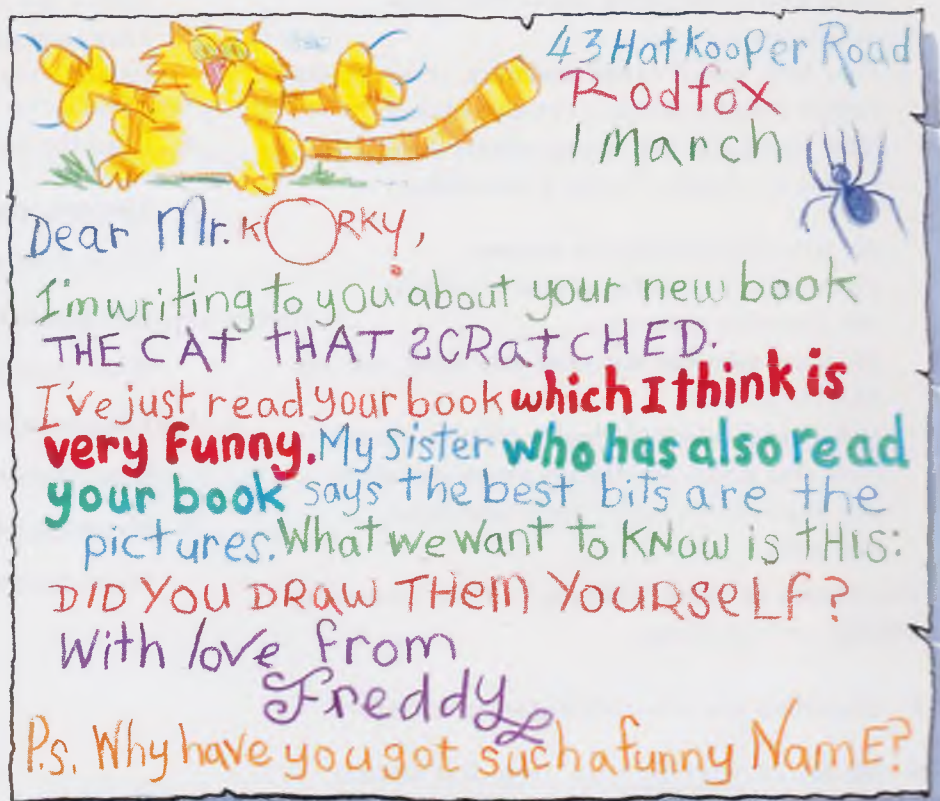 43 Hatkooper Road
Rodfox
1 March
Dear Mr. KORKY,
I'm writing to you about your new book
THE CAt tHAT SCRatCHED.
I've just read your book which I think is
very funny. My Sister who has also read
your book says the best bits are the
pictures. What we want to KNow is tHIS:
DID YOU DRaW THem YouRSeLF?
With love from
Freddy
P.s. Why have you got such a funny NamE?